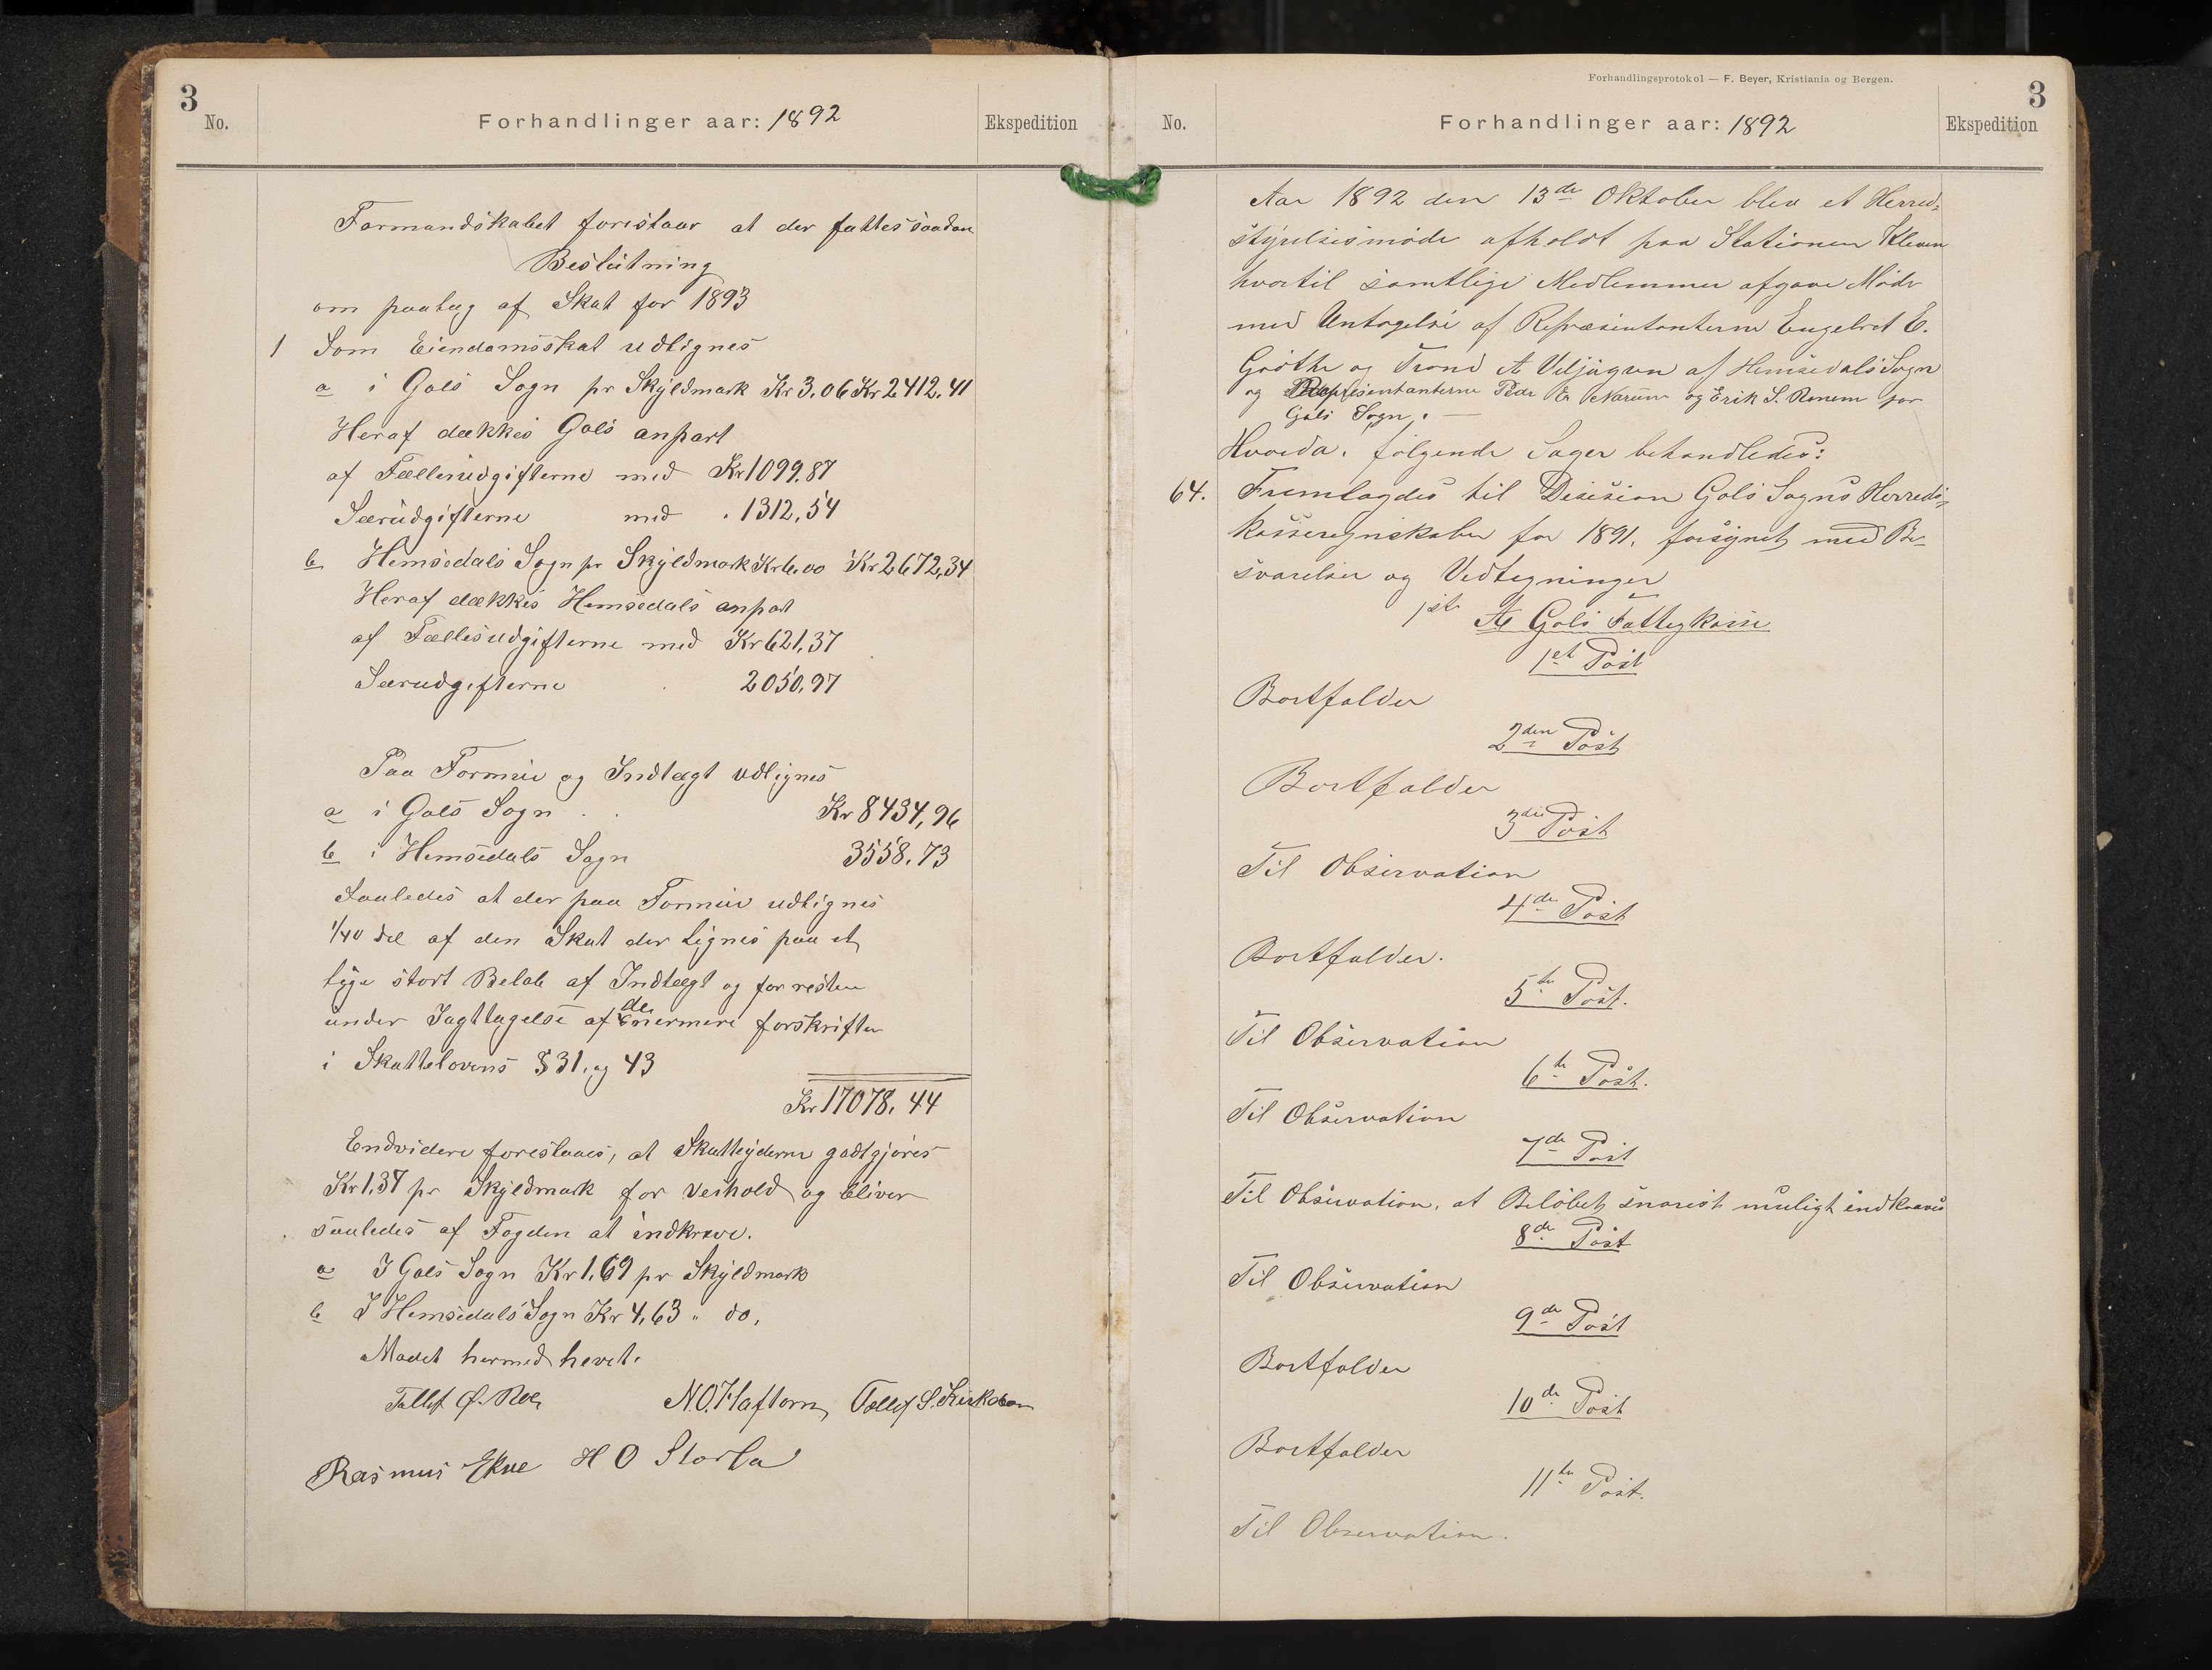 3
No.
Forhandlinger aar: 1892
Ekspedition
Formandskabet foreslaar at der fattes saadan
Beslutning
om paalæg af Skat for 1893
1 Som Eiendomsskat udlignes
a i Gols Sogn pr Skyldmark Kr 3.06 Kr 2412.41
Heraf dækkes Gols anpart
af Fællesudgifterne med Kr 1099.87
Særudgifterne med . 1312,54
b Hemsedals Sogn pr Skyldmark Kr 6.00 Kr 2672,34
Heraf dækkes Hemsedals anpat
af Fællesudgifterne med Kr 621,37
Særudgifterne 2050,97
Paa Formue og Indtægt udlignes
a i Gols Sogn . . Kr 8434,96
b i Hemsedals Sogn 3558.73
Saaledes at der paa Formue udlignes
1/40 del af den Skat der lignes paa et
lige stort Beløb af Indtægt og for resten
under Iagttagelse af de nærmere forskrifter
i Skattelovens § 31. og 43
Kr 17078.44
Endvidere foreslaaes, at Skatteyderne godtgjøres
Kr 1,37 pr Skyldmark for Veihold og bliver
saaledes af Fogden at indkræve.
a I Gols Sogn Kr 1,69 pr Skyldmark
b I Hemsedals Sogn Kr 4,63 " do.
Mødet hermed hevet.
Tollef Ø. Roe N.O. Haftorn Tollef S. Kirkebøen
Rasmus Ekre H O Storla
Forhandlingsprotokol — F. Beyer, Kristiania og Bergen.
3
No.
Forhandlinger aar: 1892
Ekspedition
Aar 1892 den 13de Oktober blev et Herred-
styrelsesmøde afholdt paa Stationen Kleven
hvortil samtlige Medlemmer afgave Møde
med Untagelse af Repræsentanterne Engebret E.
Grøthe og Trond A Viljugrein af Hemsedals Sogn
og Repræsentanterne Peder E Narum og Erik S. Renem for
Gols Sogn. —
Hvorda. følgende Sager behandledes:
64. Fremlagdes til Desision Gols Sogns Herreds-
kasseregnskaber for 1891, forsynet med Be-
svarelser og Vedtegninger
1ste A Gols Fattigkasse
1et Post
Bortfalder
2den Post
Bortfalder
3die Post
Til Observation
4de Post
Bortfalder.
5te Post.
Til Observation
6te Post.
Til Observation
7de Post
Til Observation, at Beløbet snarest muligt indkræves
8de Post
Til Observation
9de Post
Bortfalder
10de Post
Bortfalder
11te Post.
Til Observation.